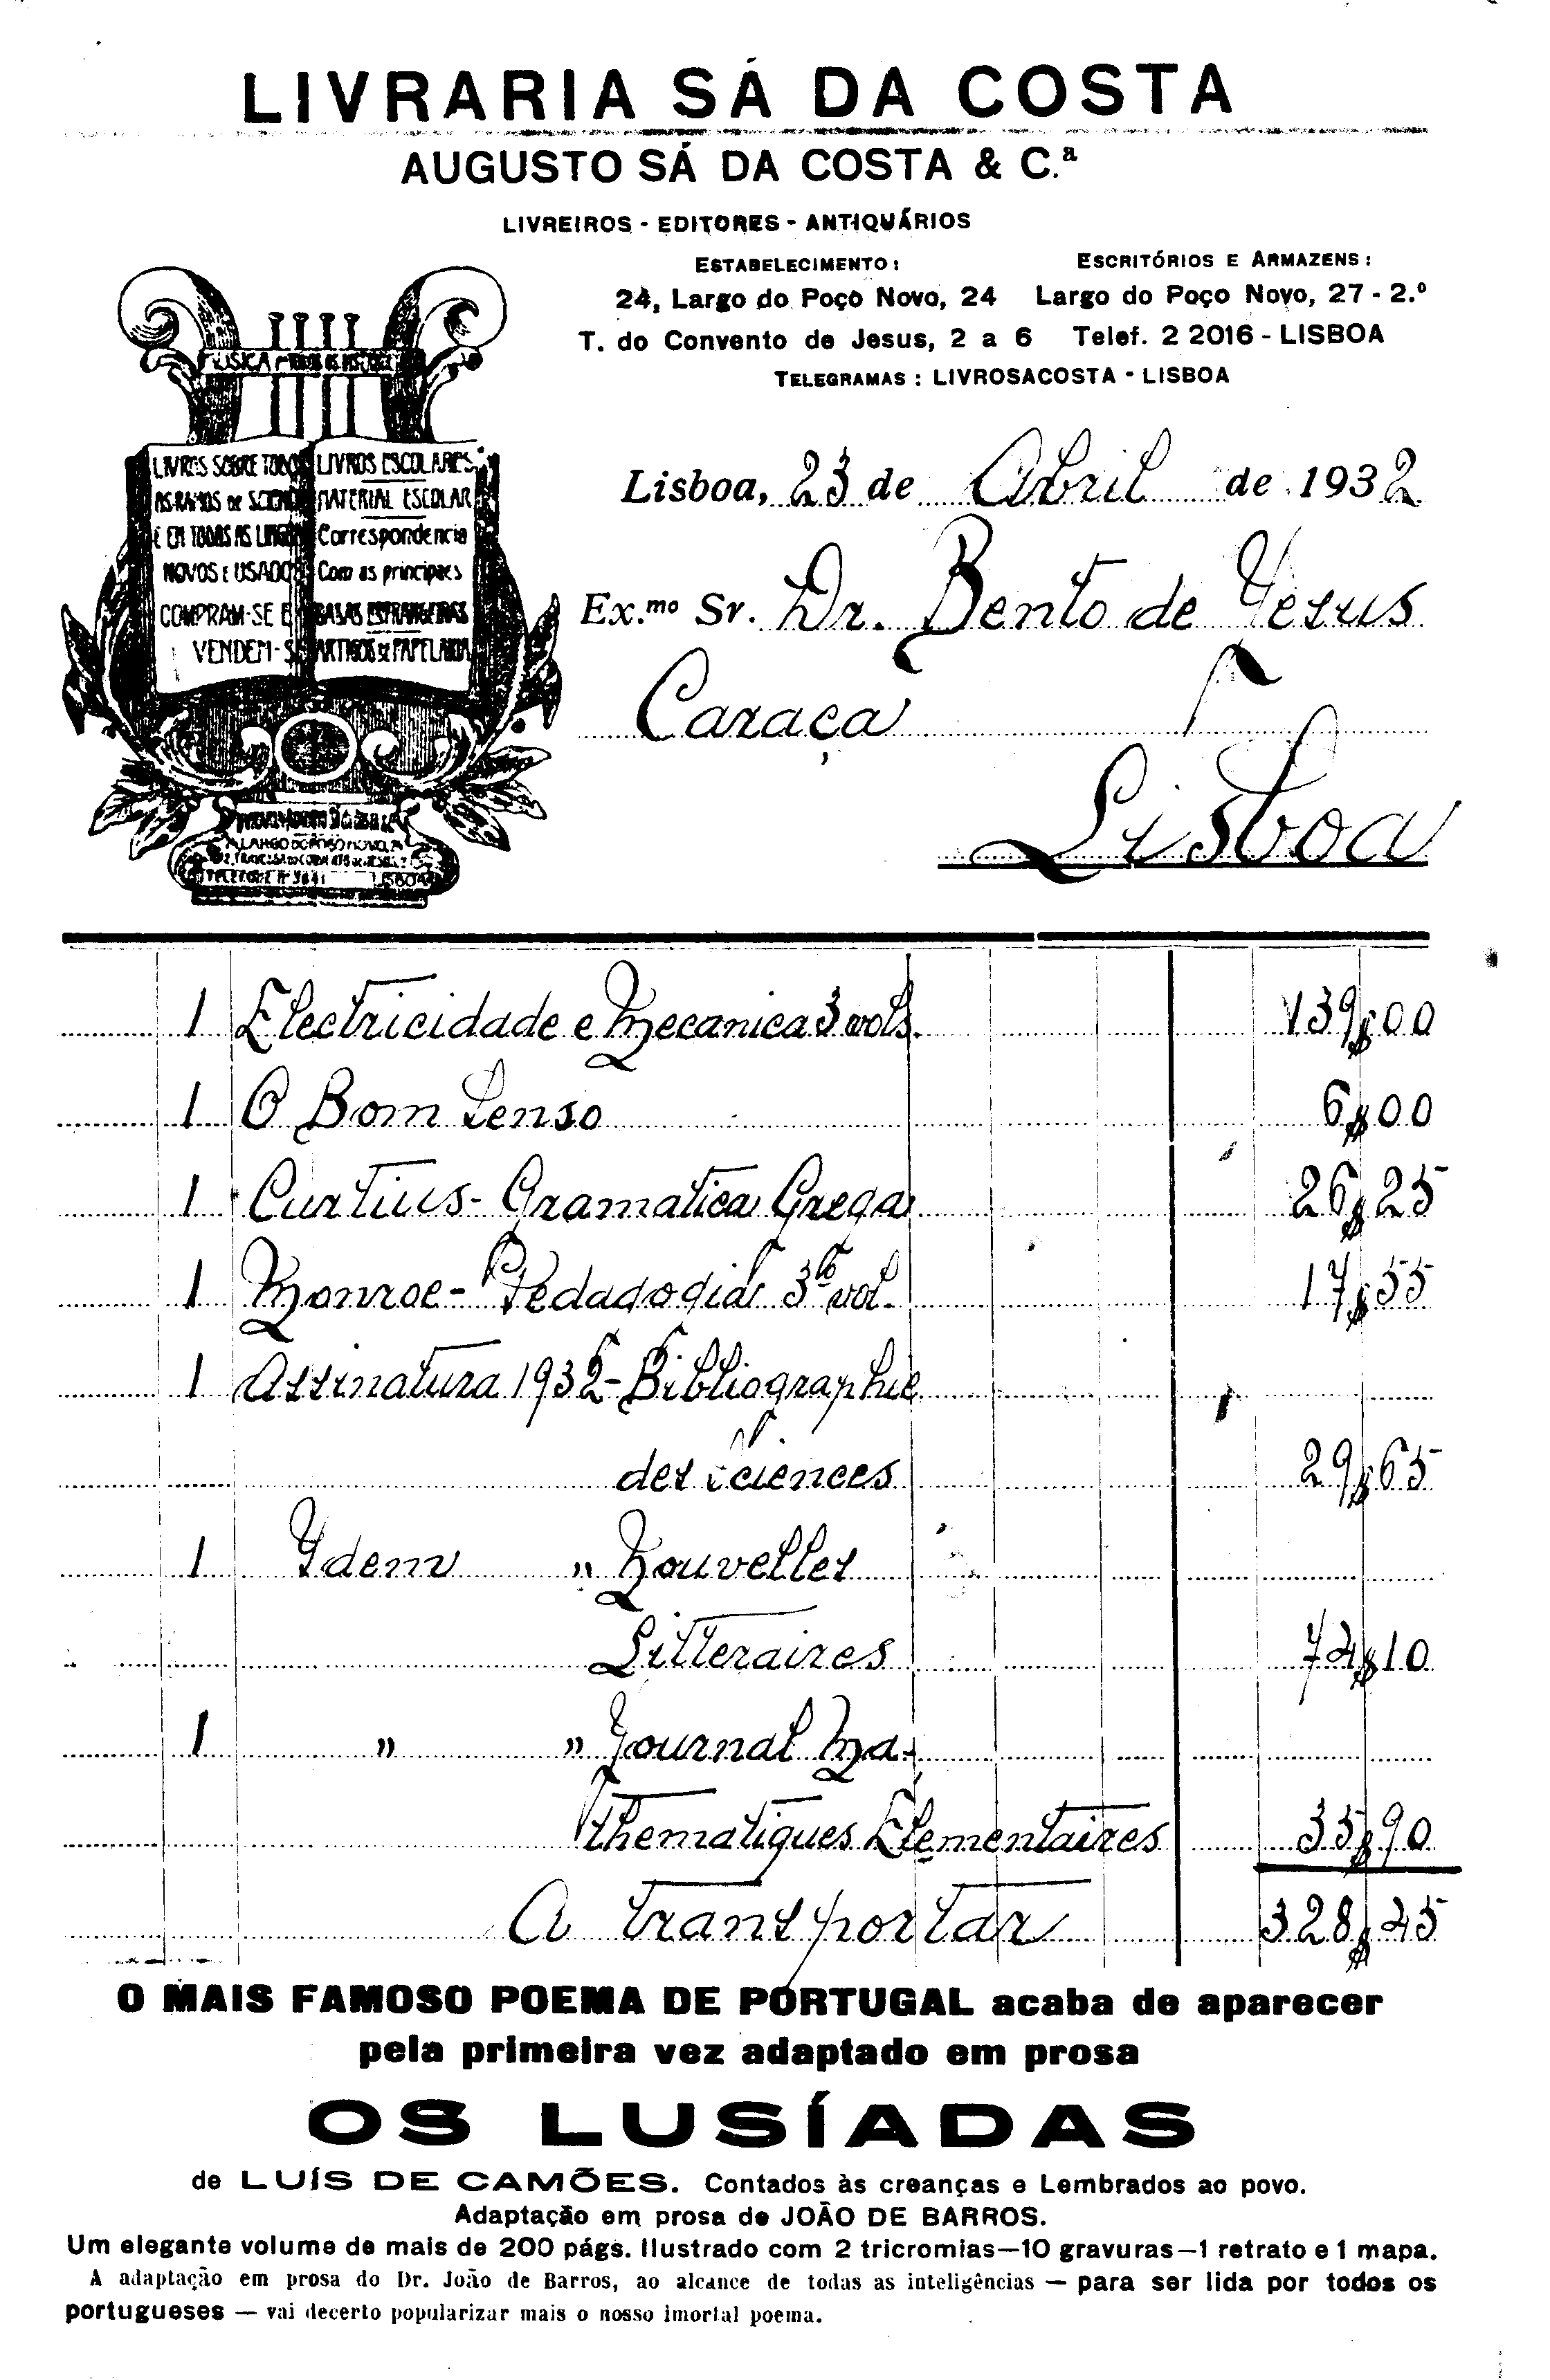 LIVRARIA SÁ DA COSTA
AUGUSTO SÁ DA COSTA & C.ª
LIVREIROS - EDITORES - ANTIQUÁRIOS
ESTABELECIMENTO: ESCRITÓRIOS E ARMAZENS:
24, Largo do Poço Novo, 24 Largo do Poço Novo, 27 - 2.º
T. do Convento de Jesus, 2 a 6 Telef. 2 2016 - LISBOA
TELEGRAMAS: LIVROSACOSTA - LISBOA
MUSICA
LIVROS SOBRE TODOS
OS RAMOS DE SCIENCIA
E EM TODAS AS LINGUAS
NOVOS E USADOS
COMPRAM-SE E
VENDEM-SE
LIVROS ESCOLARES
MATERIAL ESCOLAR
Correspondencia
Com as principaes
CASAS ESTRANGEIRAS
ARTIGOS DE PAPELARIA
LARGO DO POÇO NOVO, 24
LISBOA
Lisboa, 23 de Abril de 1932
Ex.mo Sr. Dr. Bento de Jesus
Caraça
Lisboa
1 Electricidade e Mecanica 3 vols. 139$00
1 O Bom Senso 6$00
1 Curtius - Gramatica Grega 26$25
1 Monroe - Pedagogia 3º vol. 17$55
1 Assinatura 1932 - Bibliographie
des Sciences 29$65
1 Idem " Nouvelles
Litteraires 74$10
1 " " Journal Ma-
thematiques Elementaires 35$90
A transportar 328$45
O MAIS FAMOSO POEMA DE PORTUGAL acaba de aparecer
pela primeira vez adaptado em prosa
OS LUSÍADAS
de LUÍS DE CAMÕES. Contados às creanças e Lembrados ao povo.
Adaptação em prosa de JOÃO DE BARROS.
Um elegante volume de mais de 200 págs. Ilustrado com 2 tricromias—10 gravuras—1 retrato e 1 mapa.
A adaptação em prosa do Dr. João de Barros, ao alcance de todas as inteligências — para ser lida por todos os
portugueses — vai decerto popularizar mais o nosso imortal poema.